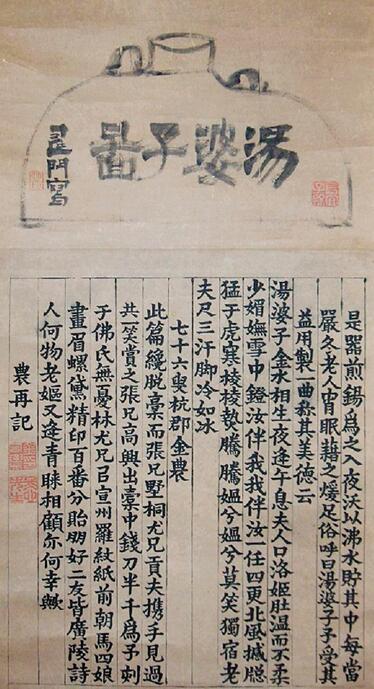 湯婆子啚
門寫
是器煎錫爲之入夜沃以沸水貯其中每當
嚴冬老人宵眠藉之煖足俗呼曰湯婆子予受其
益用製一曲称其美德云
湯婆子金水相生夜逢午息夫人口洛姬肚温而不柔
少媚嫵雪中鐙汝伴我我伴汝一任四更北風撼牕
猛于虎寒棱棱熱騰騰媼兮媼兮莫笑獨宿老
夫尺三汗脚冷如冰
七十六叟杭郡金農
此篇纔脱稾而張兄墅桐尤兄貢夫携手見過
共一笑賞之張兄高興出橐中錢刀半千爲予刺
于佛氏無憂林尤兄召宣州羅紋紙前朝馬四娘
畫眉螺黛精印百番分貽朋好二友皆廣陵詩
人何物老嫗又逢青睞相顧尒何幸歟
農再記